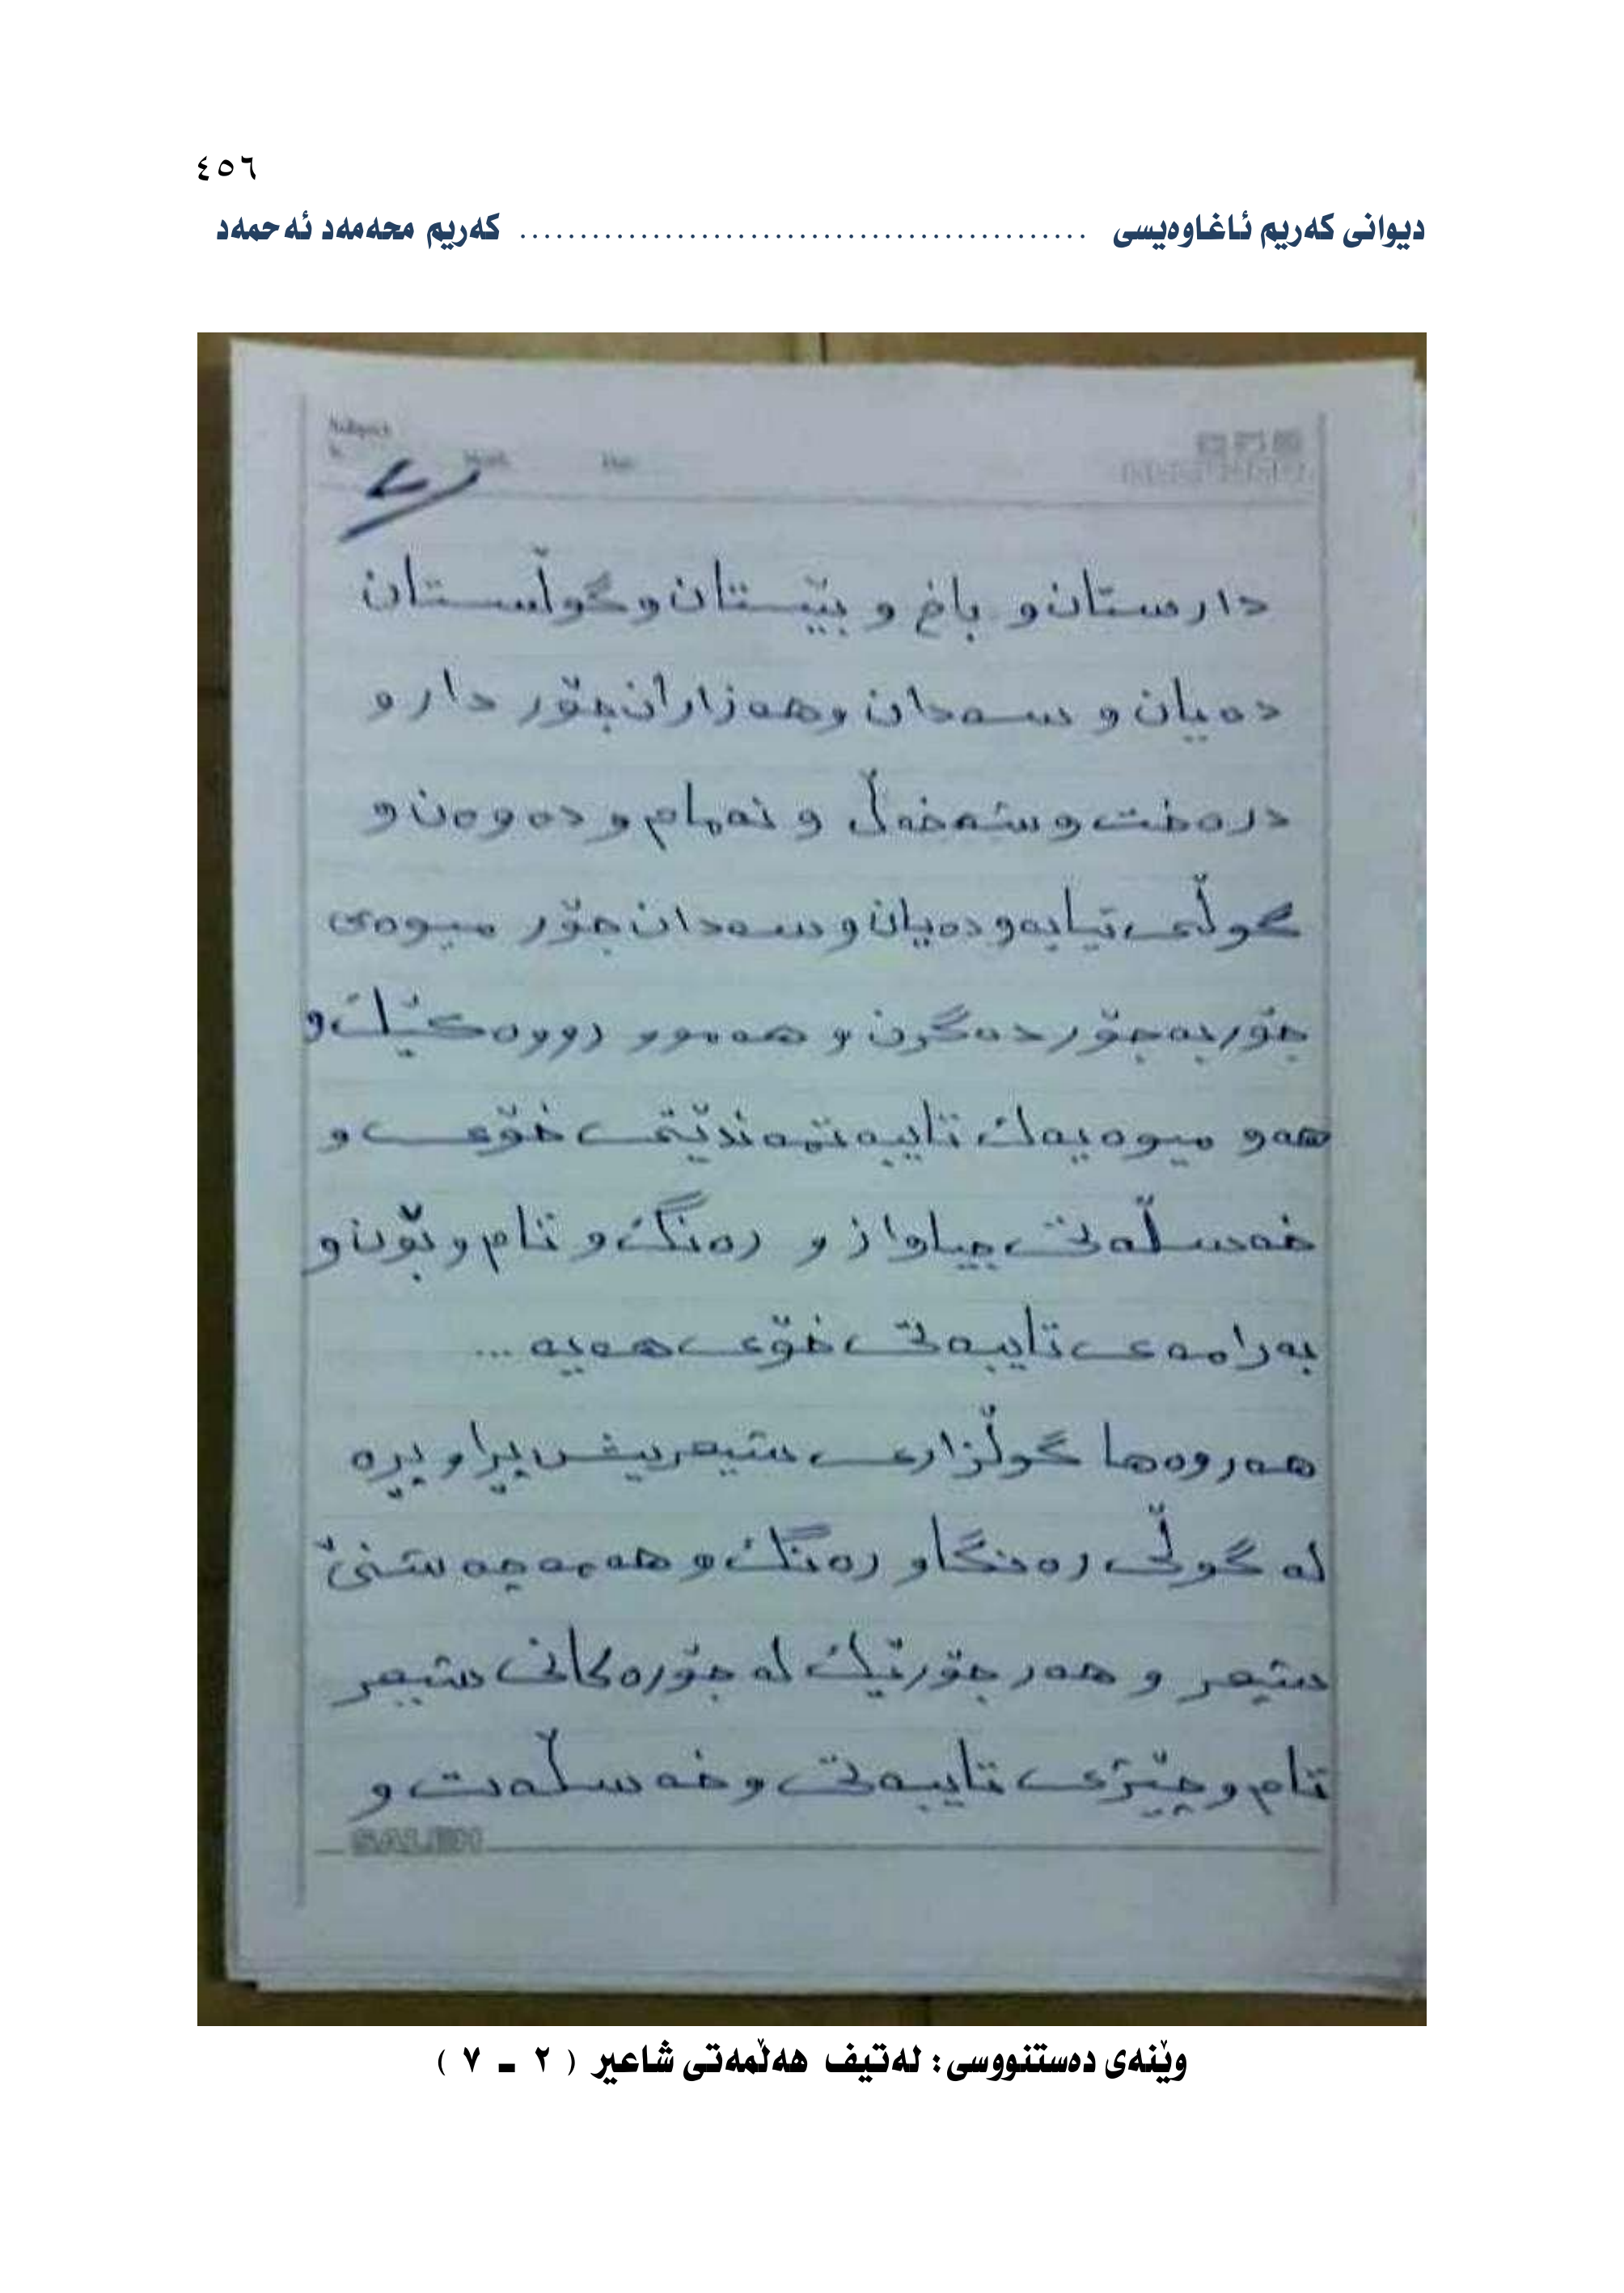 ٤٥٦
دیوانی کەریم ئاغاوەیسی ............................................... کەریم محەمەد ئەحمەد
دارستان و باخ و بێستان و گوڵستان
دەیان و سەدان و هەزاران جۆر دار و
درەخت و شەخەڵ و نەمام و دەوەن و
گوڵی تیایە و دەیان و سەدان جۆر میوەی
جۆر بە جۆر دەگرن و هەموو رووەکێک و
هەو میوەیەک تایبەتمەندێتی خۆی و
خەسڵەتی جیاواز و رەنگ و تام و بۆن و
بەرامەی تایبەتی خۆی هەیە ...
هەروەها گوڵزاری شیعریش پڕاو پڕە
لە گوڵی رەنگاو رەنگ و هەمە چەشنێ
شیعر و هەر جۆرێک لە جۆرەکانی شیعر
تام و چێژی تایبەتی و خەسڵەت و
SALEH
وێنەی دەستنووسی: لەتیف هەڵمەتی شاعیر ( ٢ ـ ٧ )